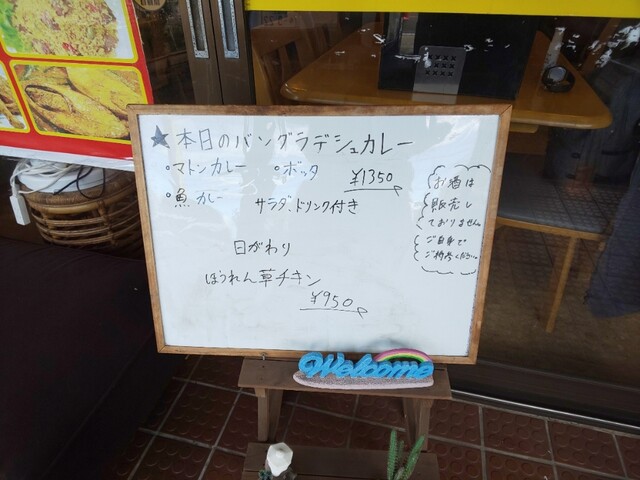 ★本日のバングラデシュカレー
・マトンカレー ・ボッタ
¥1350
・魚カレー
サラダ、ドリンク付き
日がわり
ほうれん草チキン
¥950
お酒は
販売し
ておりません。
ご自身で
ご持参ください。
Welcome